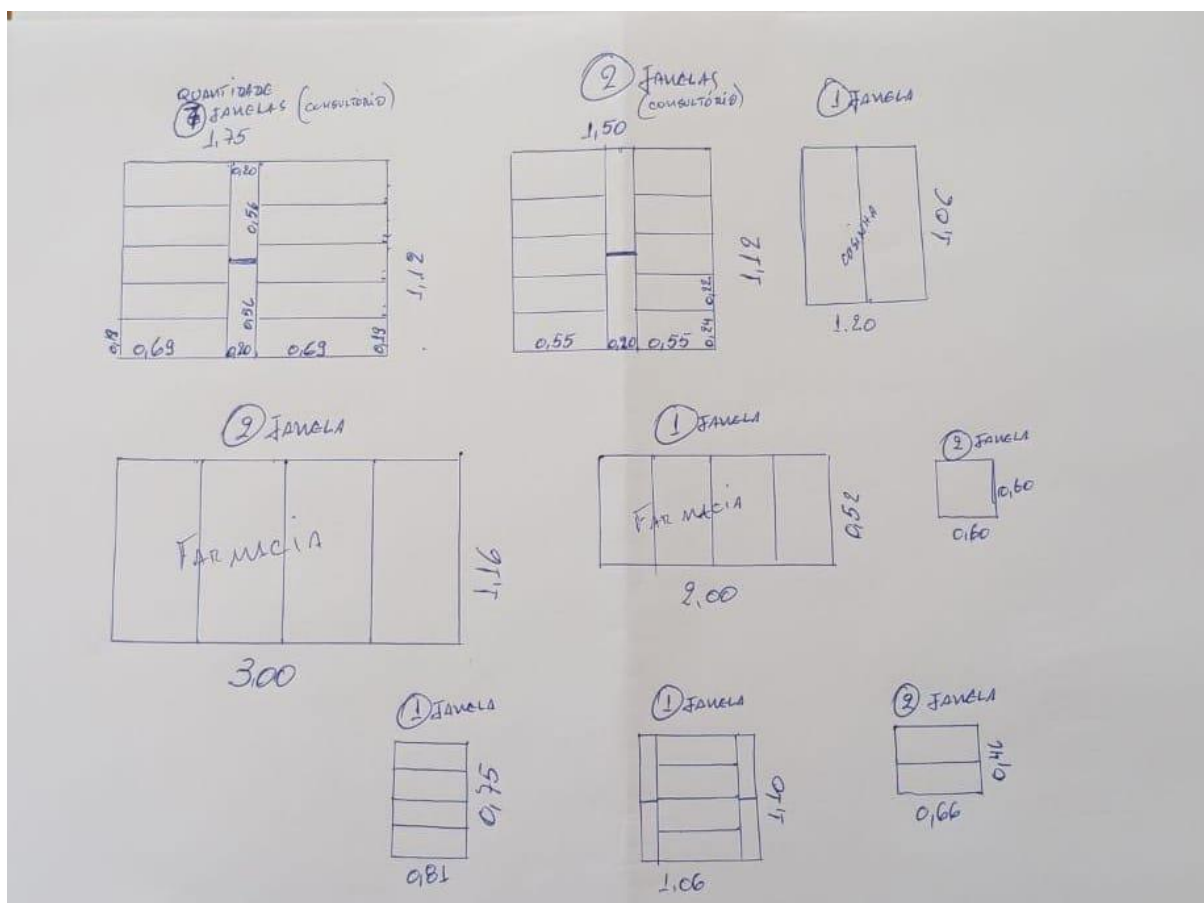 QUANTIDADE
7 JANELAS (CONSULTÓRIO)
1,75
0,20
0,56
0,56
1,12
0,19
0,69
0,20
0,69
0,19
2 JANELAS
(CONSULTÓRIO)
1,50
1,12
0,22
0,24
0,55
0,20
0,55
1 JANELA
COSINHA
1,06
1.20
2 JANELA
FARMACIA
1,16
3,00
1 JANELA
FARMACIA
0,52
2,00
2 JANELA
0,60
0,60
1 JANELA
0,75
0,81
1 JANELA
1,10
1,06
2 JANELA
0,46
0,66